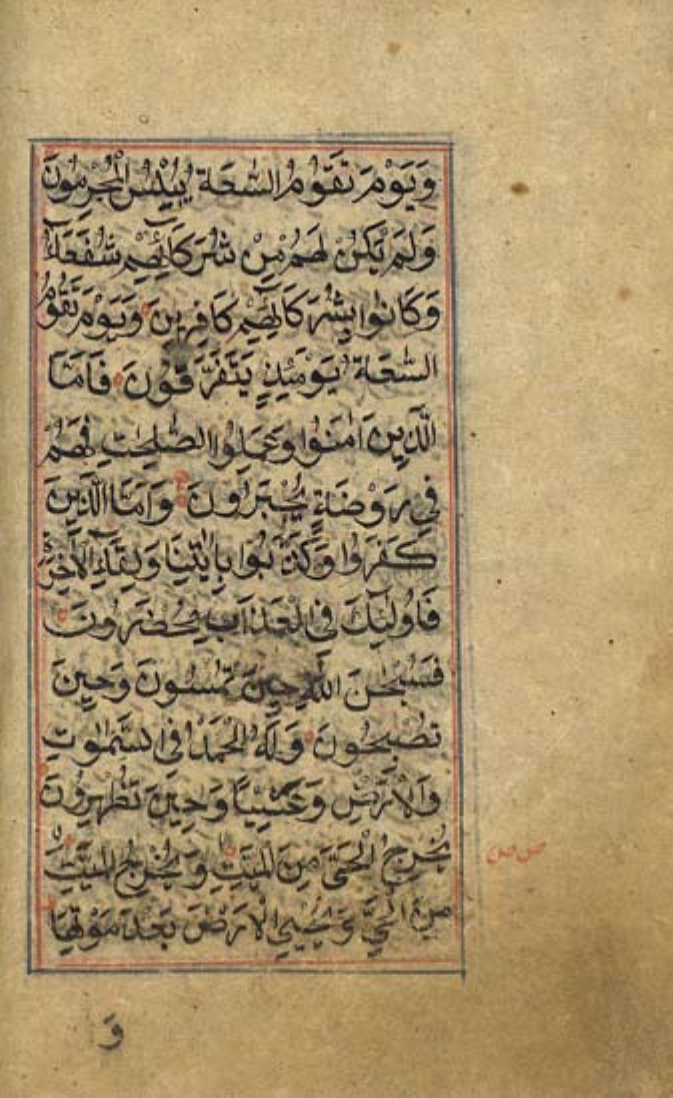 وَيَوْمَ تَقُوْمُ السّٰعَةُ يُبْلِسُ الْمُجْرِمُونَ
وَلَمْ يَكُنْ لَهُمْ مِنْ شُرَكَائِهِمْ شُفَعَٰٓؤُ
وَكَانُوا بِشُرَكَائِهِمْ كَافِرِينَ وَيَوْمَ تَقُوْمُ
السّٰعَةُ يَوْمَئِذٍ يَتَفَرَّقُونَ فَاَمَّا
الَّذِينَ اٰمَنُوا وَعَمِلُوا الصّٰلِحٰتِ فَهُمْ
فِي رَوْضَةٍ يُحْبَرُونَ وَاَمَّا الَّذِينَ
كَفَرُوا وَكَذَّبُوا بِاٰيٰتِنَا وَلِقَآءِ الْاٰخِرَةِ
فَاُولٰئِكَ فِي الْعَذَابِ مُحْضَرُونَ
فَسُبْحٰنَ اللّٰهِ حِينَ تُمْسُونَ وَحِينَ
تُصْبِحُونَ وَلَهُ الْحَمْدُ فِي السَّمٰوٰتِ
وَالْاَرْضِ وَعَشِيًّا وَحِينَ تُظْهِرُونَ
يُخْرِجُ الْحَيَّ مِنَ الْمَيِّتِ وَيُخْرِجُ الْمَيِّتَ
مِنَ الْحَيِّ وَيُحْيِي الْاَرْضَ بَعْدَ مَوْتِهَا
وَ